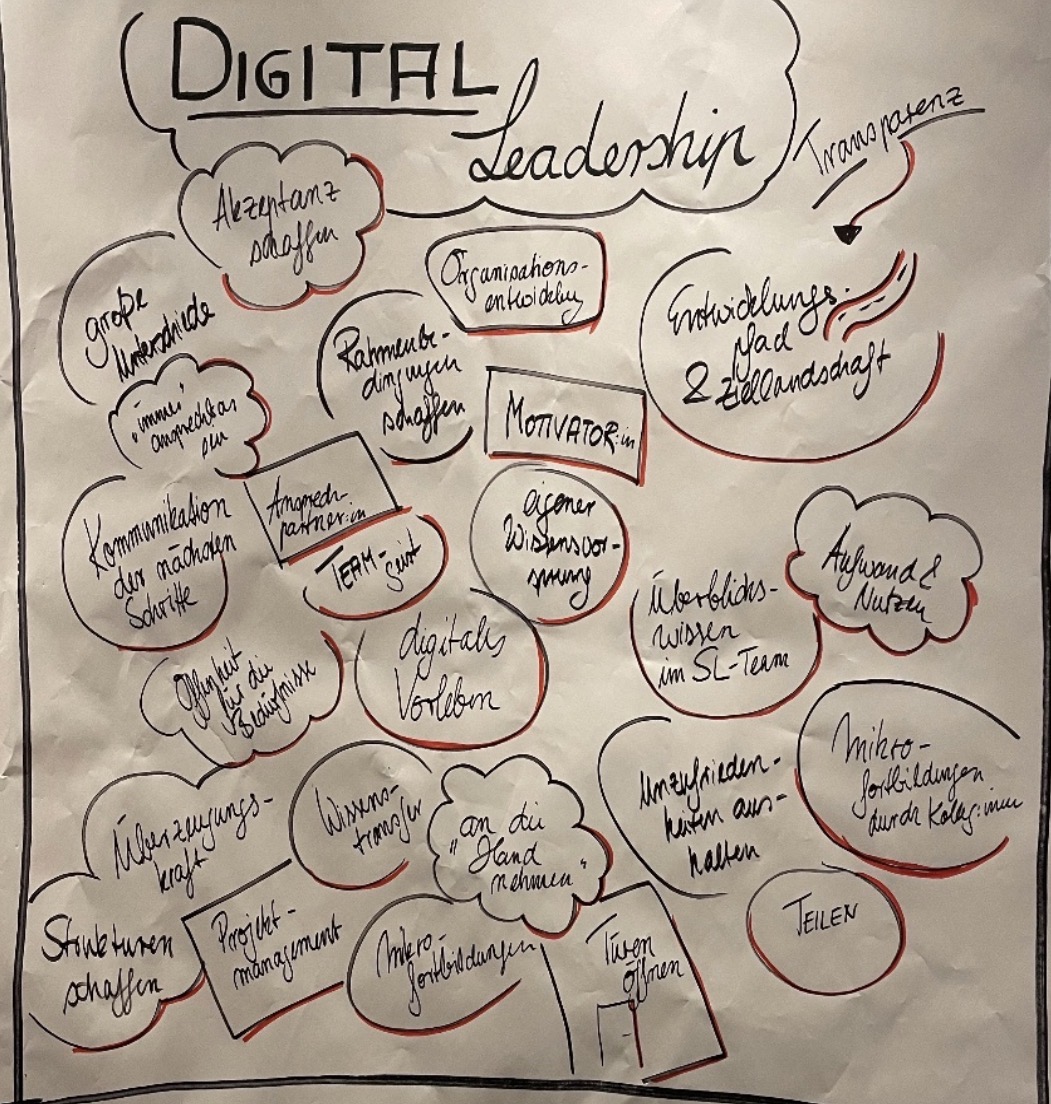 DIGITAL
Leadership
Transparenz
Akzeptanz
schaffen
große
Unterschiede
Organisations-
entwicklung
Entwicklungs-
pfad
& Ziellandschaft
Rahmenbe-
dingungen
schaffen
MOTIVATOR:in
"immer"
ansprechbar
sein
Ansprech-
partner:in
TEAM-
geist
Kommunikation
der nächsten
Schritte
eigener
Wissensvor-
sprung
Aufwand &
Nutzen
Überblicks-
wissen
im SL-Team
digitales
Vorleben
Offenheit
für die
Bedürfnisse
Mikro-
fortbildungen
durch Kolleg:innen
Unzufrieden-
heiten aus-
halten
Überzeugungs-
kraft
Wissens-
transfer
"an die
Hand
nehmen"
TEILEN
Strukturen
schaffen
Projekt-
management
Mikro-
fortbildungen
Türen
öffnen